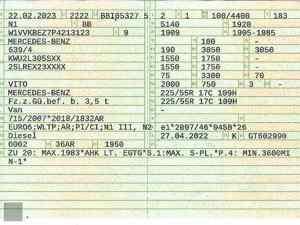 22.02.2023 2222 BBI 5 2 1 100/4400 183
N1 BB 5140 1928
W1VVKBEZ7P4213123 9 1909 1995-1985
MERCEDES-BENZ 100 -
639/4 190 3050 3050
KWU2L305XX 1550 1750 -
2SLREX23XXXX 1550 1750 -
75 3300 70
VITO 2000 750 3 -
MERCEDES-BENZ 225/55R 17C 109H
Fz.z.Gü.bef. b. 3,5 t 225/55R 17C 109H
Van -
715/2007*2018/1832AR
EURO6;WLTP;AR;PI/CI;N1 III, N2 e1*2007/46*0458*26
Diesel 27.04.2022 K GT602990
0002 36AR 1950
ZU 20: MAX.1983*AHK LT. EGTG*S.1:MAX. S-PL.*P.4: MIN.3600MI
N-1*